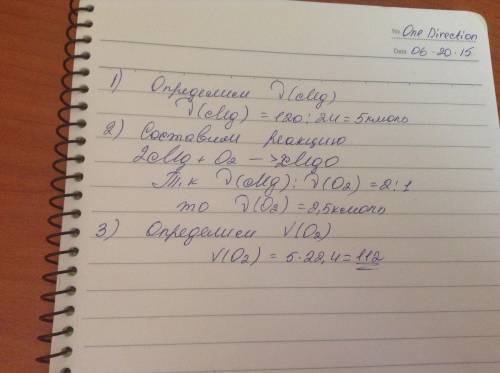 No. One Direction
Date 06-20-15
1) Определим ν(Mg)
ν(Mg) = 120:24 = 5кмоль
2) Составим реакцию
2Mg + O₂ —> 2MgO
Т.к ν(Mg):ν(O₂) = 2:1
то ν(O₂) = 2,5кмоль
3) Определим V(O₂)
V(O₂) = 5·22,4 = 112